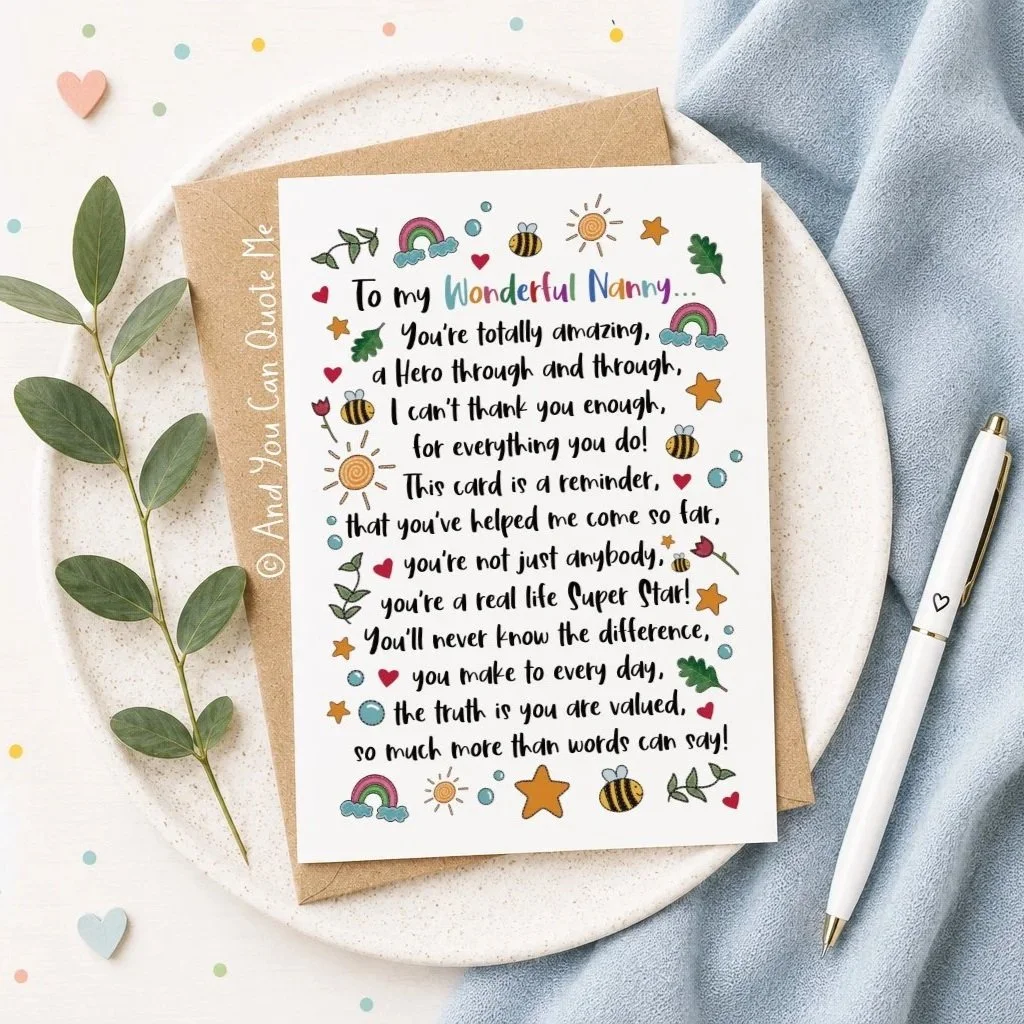 To my Wonderful Nanny...
You're totally amazing,
a Hero through and through,
I can't thank you enough,
for everything you do!
This card is a reminder,
that you've helped me come so far,
you're not just anybody,
you're a real life Super Star!
You'll never know the difference,
you make to every day,
the truth is you are valued,
so much more than words can say!
© And You Can Quote Me